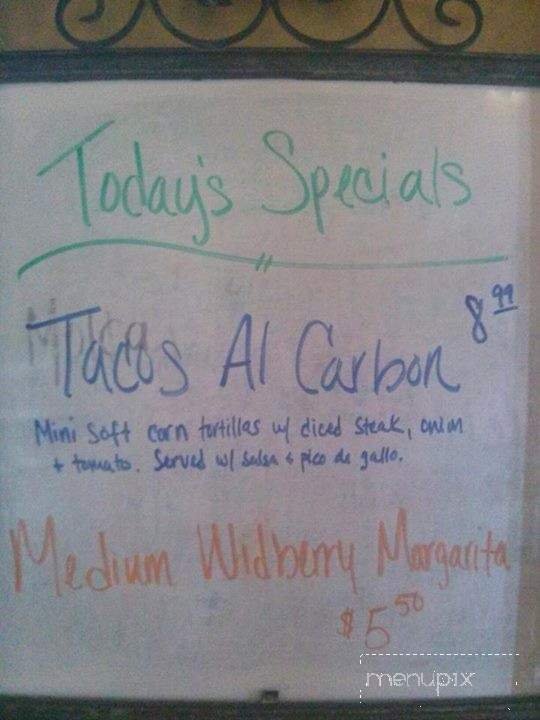 Today's Specials
Tacos Al Carbon 8 99
Mini soft corn tortillas w/ diced steak, onion
+ tomato. Served w/ salsa & pico de gallo.
Medium Wildberry Margarita
$5 50
menupix